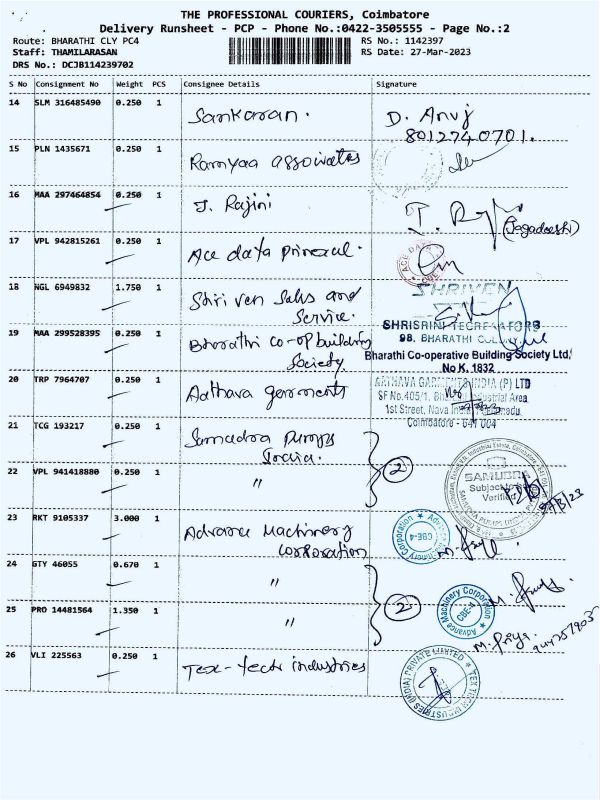 THE PROFESSIONAL COURIERS, Coimbatore
Delivery Runsheet - PCP - Phone No.:0422-3505555 - Page No.:2
Route: BHARATHI CLY PC4 RS No.: 1142397
Staff: THAMILARASAN RS Date: 27-Mar-2023
DRS No.: DCJB114239702
S No Consignment No Weight PCS Consignee Details Signature
14 SLM 316485490 0.250 1 Sankaran. D. Anuj
8012740701.
15 PLN 1435671 0.250 1 Ramyaa associates
16 MAA 297464854 0.250 1 J. Rajini (Jagadeesh)
17 VPL 942815261 0.250 1 Ace data
18 NGL 6949832 1.750 1 Shri ven Sales and
Service.
SHRIVEN
19 MAA 299528395 0.250 1 Bharathi co-op building
Society.
98, BHARATHI
Bharathi Co-operative Building Society Ltd,
No K. 1832
20 TRP 7964707 0.250 1 Aathava garments
AATHAVA GARMENTS INDIA (P) LTD
SF No.405/1, Industrial Area
1st Street, Nava India
Coimbatore - 641 004
21 TCG 193217 0.250 1 Samudra Pumps
India.
22 VPL 941418880 0.250 1 " 2
SAMUDRA
Subject to
Verified
23 RKT 9105337 3.000 1 Advance Machinery
Corporation
Advance Machinery Corporation
CBE-4
24 GTY 46055 0.670 1 "
25 PRO 14481564 1.350 1 " 2
Advance Machinery Corporation
CBE-4
M. Priya.
26 VLI 225563 0.250 1 Tex-Tech industries
TEXTECH INDUSTRIES (INDIA) PRIVATE LIMITED